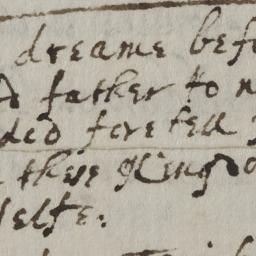 dreame bef
father to
ded foretell
there Kingdo
selfe.